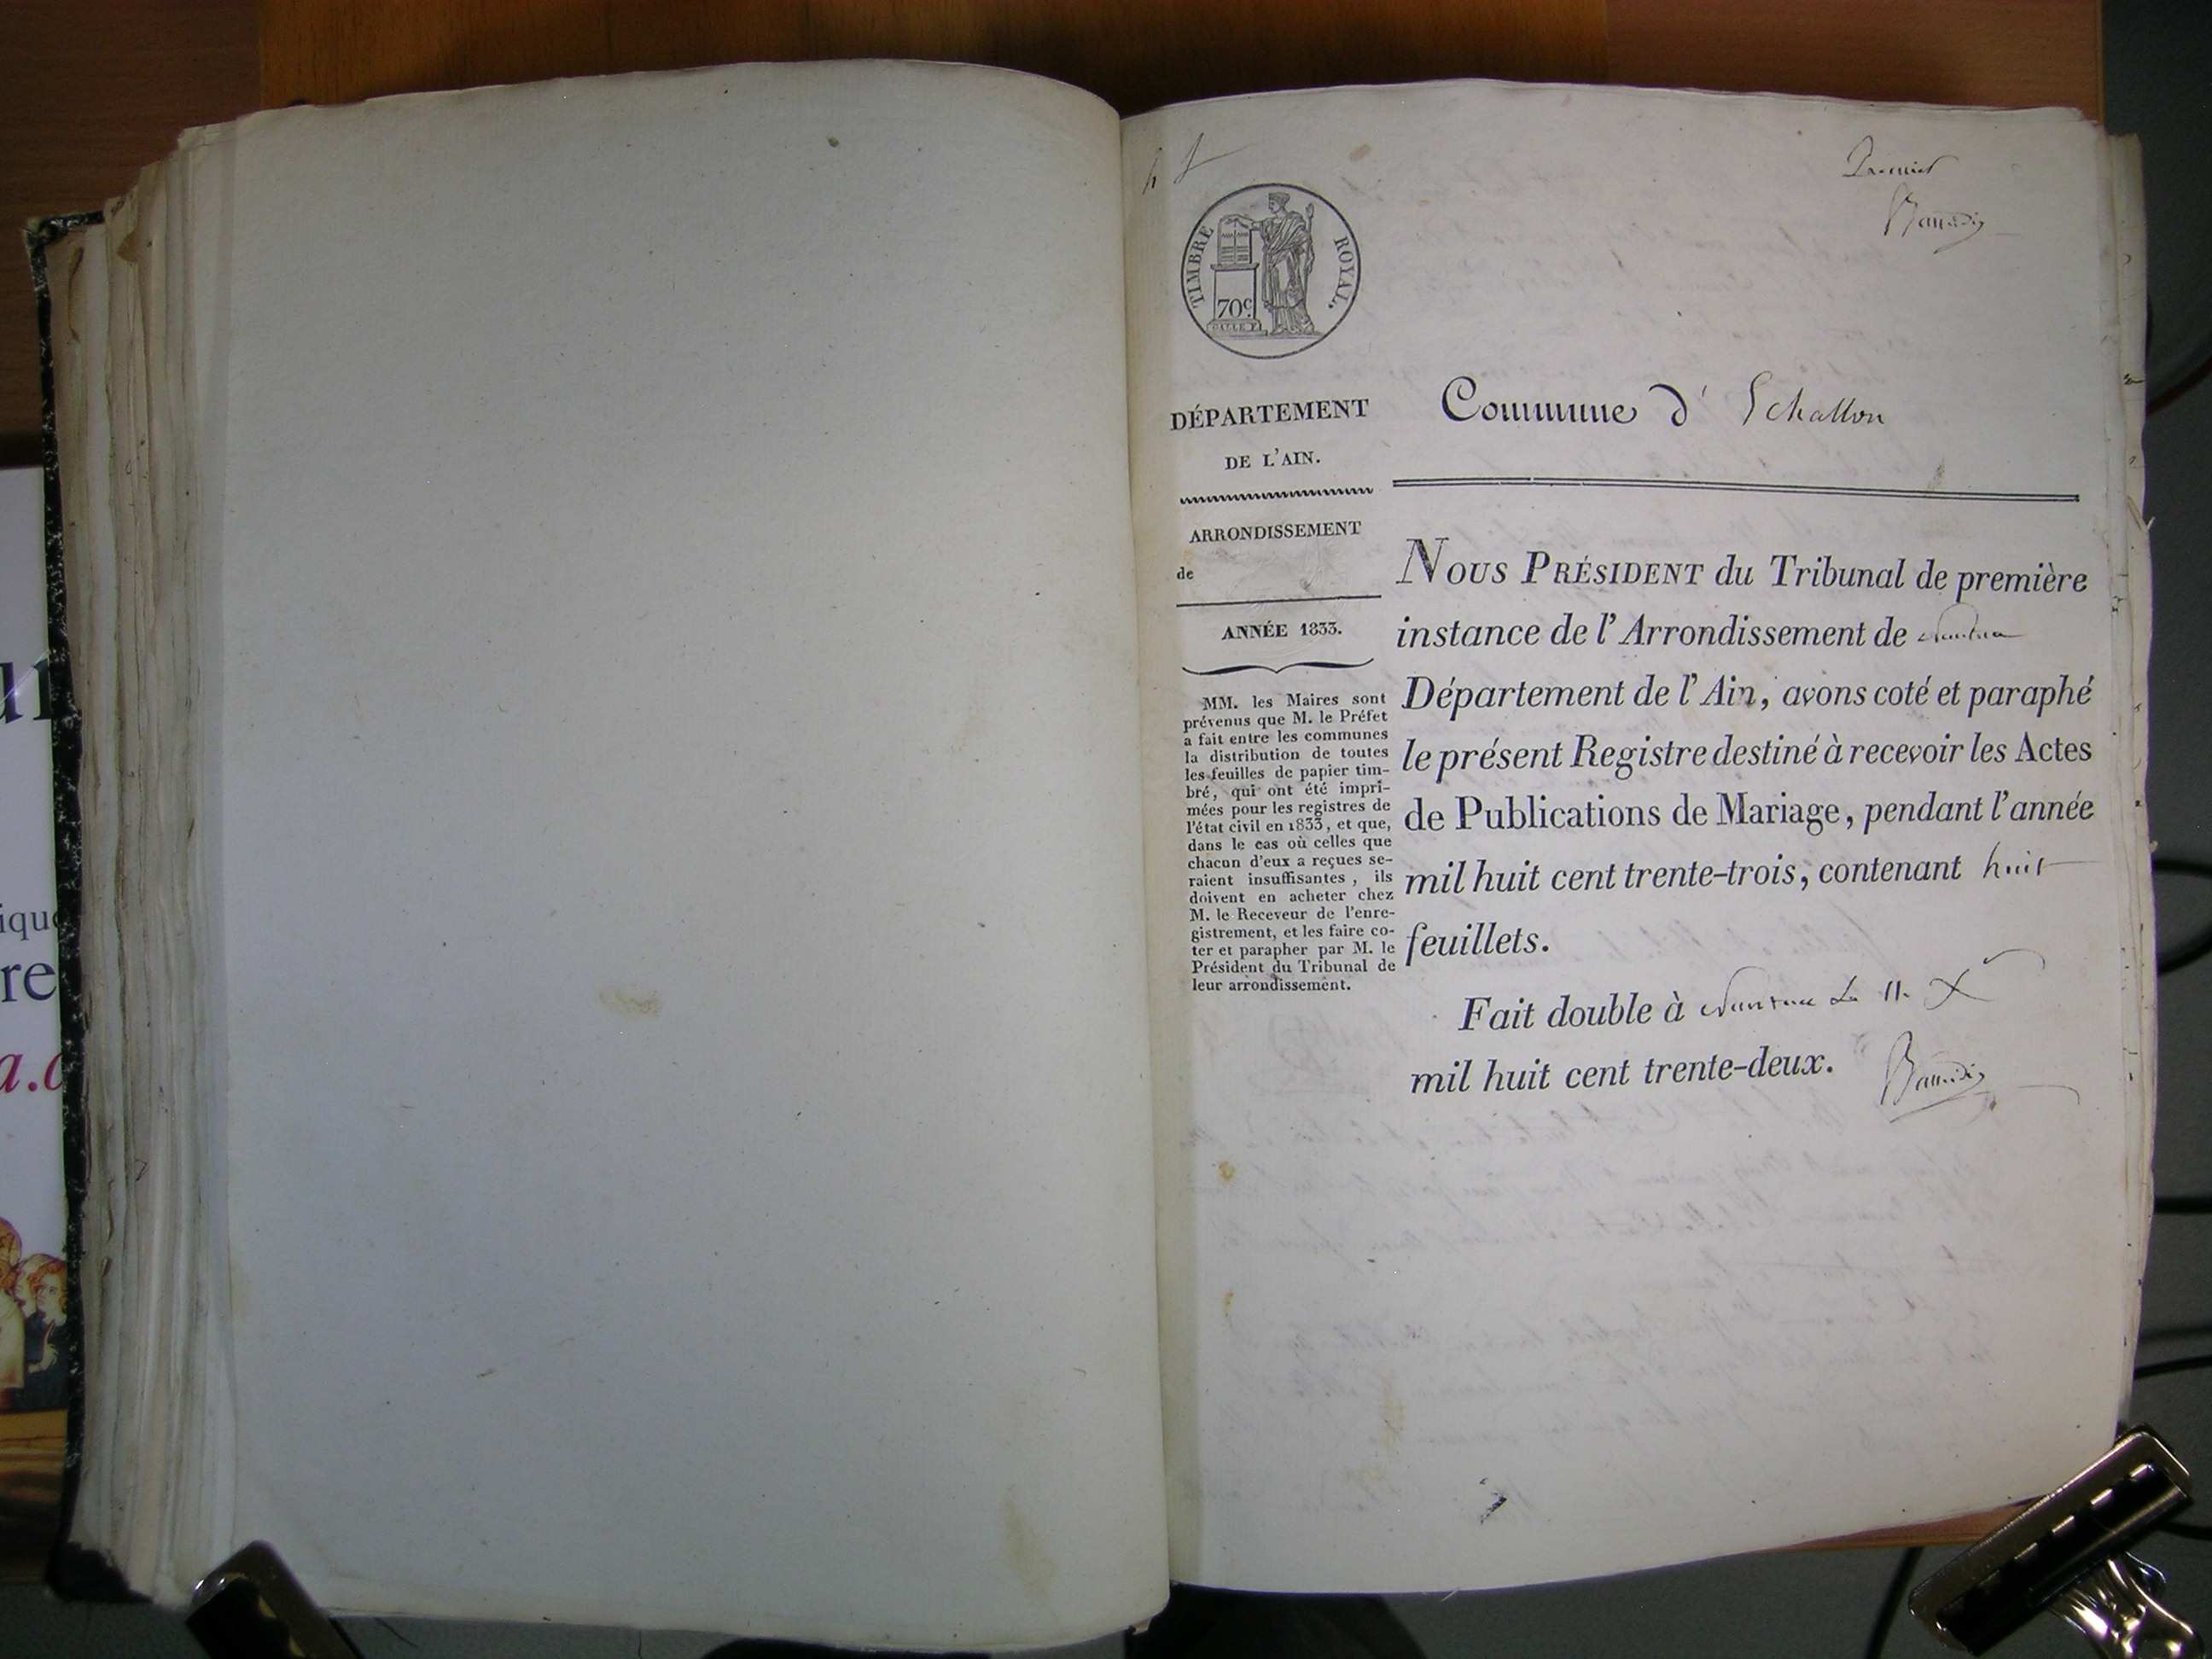 Premier
TIMBRE ROYAL.
70c
DÉPARTEMENT
DE L'AIN.
ARRONDISSEMENT
de
ANNÉE 1833.
MM. les Maires sont
prévenus que M. le Préfet
a fait entre les communes
la distribution de toutes
les feuilles de papier tim-
bré, qui ont été impri-
mées pour les registres de
l'état civil en 1833, et que,
dans le cas où celles que
chacun d'eux a reçues se-
raient insuffisantes, ils
doivent en acheter chez
M. le Receveur de l'enre-
gistrement, et les faire co-
ter et parapher par M. le
Président du Tribunal de
leur arrondissement.
Commune d' Echallon
NOUS PRÉSIDENT du Tribunal de première
instance de l'Arrondissement de Nantua
Département de l'Ain, avons coté et paraphé
le présent Registre destiné à recevoir les Actes
de Publications de Mariage, pendant l'année
mil huit cent trente-trois, contenant huit
feuillets.
Fait double à Nantua Le 11. X
mil huit cent trente-deux.
iqu
re
a.